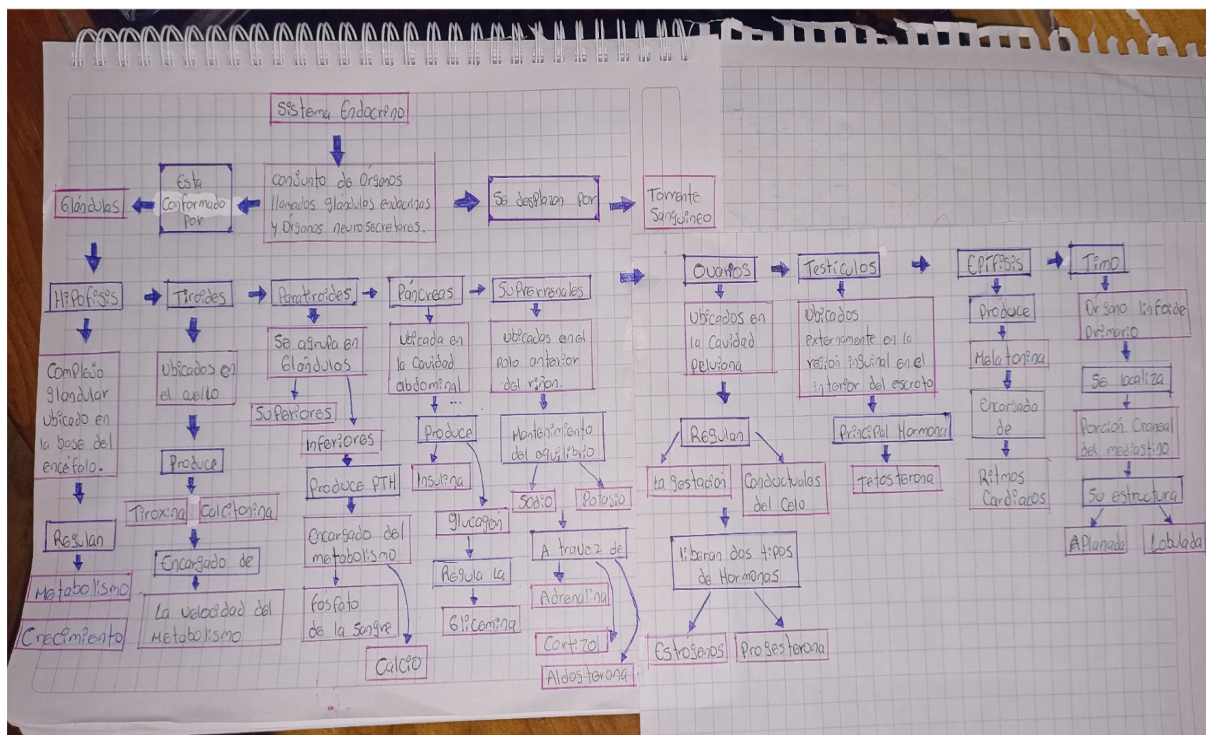 Sistema Endocreno
Glándulas
Esta
Conformado
por
Conjunto de Órganos
llamados glándulas endocrinas
y Órganos neurosecretores.
Se desplazan por
Torrente
Sanguineo
Hipofisis
Tiroides
Paratiroides
Páncreas
Suprarrenales
Ovarios
Testículos
Epífisis
Timo
Complejo
glandular
ubicado en
la base del
encéfalo.
Regulan
Metabolismo
Crecimiento
Ubicados en
el cuello
Produce
Tiroxina
Calcitonina
Encargado de
La velocidad del
Metabolismo
Se agrupa en
Glándulas
Superiores
Inferiores
Produce PTH
encargado del
metabolismo
Fosfato
de la sangre
Calcio
Ubicada en
la Cavidad
abdominal
Produce
Insulina
glucagón
Regula la
Glicemina
Ubicados en el
Polo anterior
del riñon.
Mantenimiento
del equilibrio
Sodio
Potasio
A travez de
Adrenalina
Cortizol
Aldosterona
Ubicados en
la Cavidad
pelviana
Regulan
La gestación
Conductuales
del Celo
liberan dos tipos
de Hormonas
Estrógenos
Progesterona
Ubicados
externamente en la
región inguinal en el
interior del escroto
Principal Hormona
Tetosterona
Produce
Melatonina
Encargada
de
Ritmos
Cardiacos
Órgano linfoide
primario
Se localiza
Porción Craneal
del mediastino
Su estructura
Aplanada
Lobulada